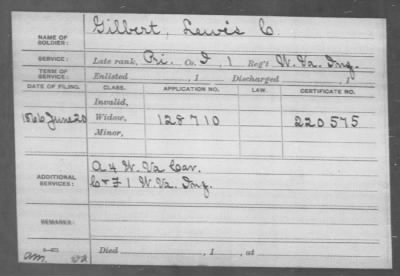 NAME OF SOLDIER: Gilbert, Lewis C.
SERVICE: Late rank, Pri. Co. I, 1 Reg't W. Va. Inf.
TERM OF SERVICE: Enlisted , 1 Discharged , 1
DATE OF FILING. CLASS. APPLICATION NO. LAW. CERTIFICATE NO.
Invalid,
1866 June 20 Widow, 128710 220575
Minor,
ADDITIONAL SERVICES: A 4 W. Va Cav.
C & F 1 W. Va. Inf.
REMARKS:
Died , 1 , at